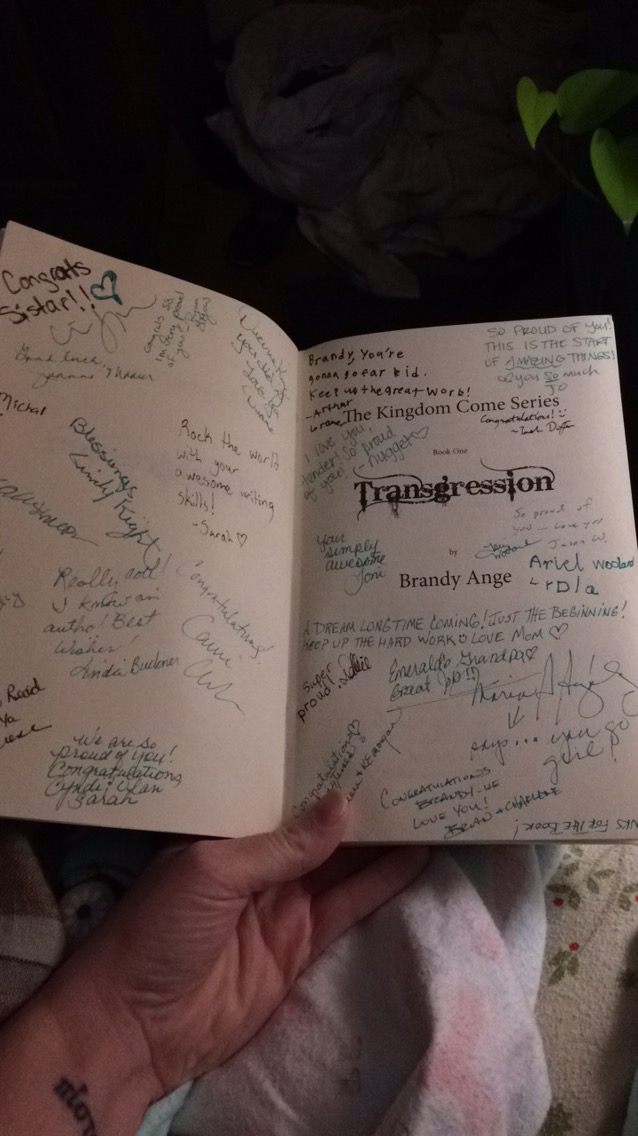 Congrats
Sistar!!
Good luck,
Michal
Blessings
Rock the world
with your
awesome writing
skills!
-Sarah
Really cool
I know an
author! Best
Wishes!
Linda Buckner
Congratulations!
We are so
proud of you!
Congratulations,
Sarah
Brandy, You're
gonna go far kid.
Keep up the great work!
-Arthur
SO PROUD OF YOU!
THIS IS THE START
OF AMAZING THINGS!
you SO much
JO
The Kingdom Come Series
Congratulations!
I love you,
so proud
of you!
nugget
Book One
Transgression
So proud of
you... Love you
Jason W.
your
simply
awesome
Toni
by
Brandy Ange
Ariel Woodard
A DREAM LONG TIME COMING! JUST THE BEGINNING!
KEEP UP THE HARD WORK LOVE MOM
super
proud!
Emerald's Grandpa
Great job!!
says... you go
girl!
Congratulations
CONGRATULATIONS
BRANDY-WE
LOVE YOU!
BRIAN + CHARLENE
THE BOOK!
mom